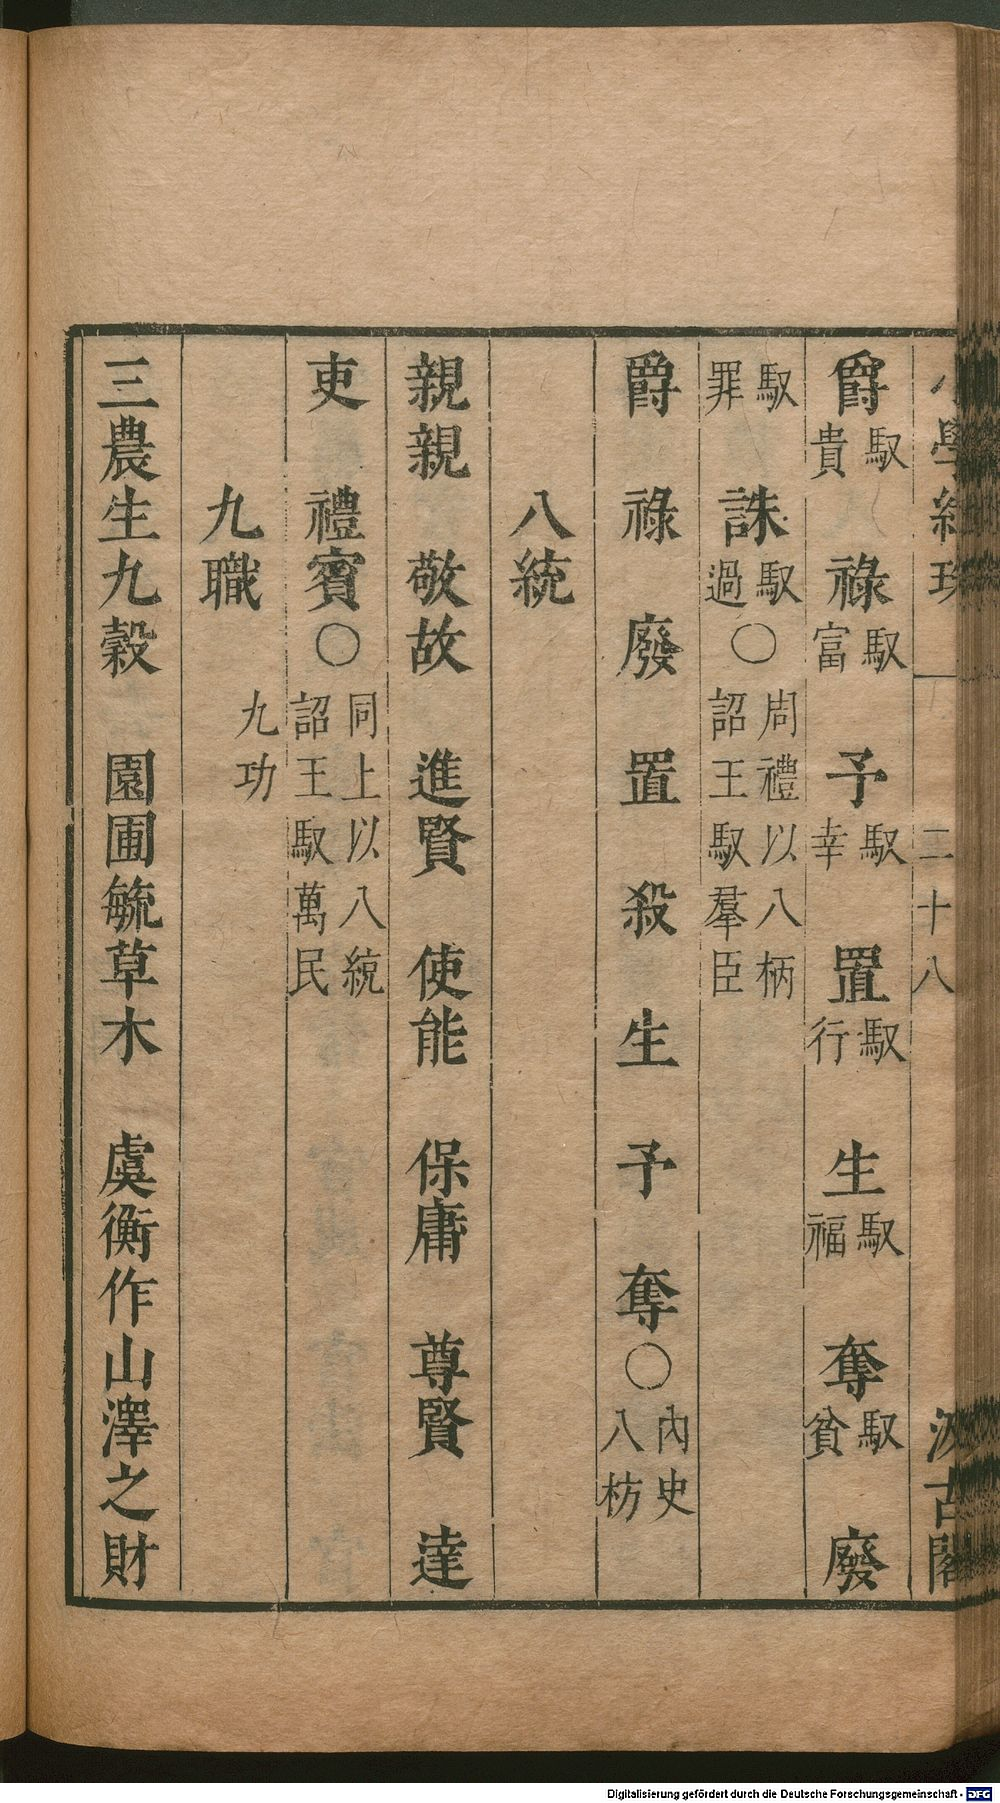 小學紺珠 二十八 汲古閣
爵馭貴 祿馭富 予馭幸 置馭行 生馭福 奪馭貧 廢
馭罪 誅馭過○周禮以八柄詔王馭羣臣
爵 祿 廢 置 殺 生 予 奪○內史八枋
八統
親親 敬故 進賢 使能 保庸 尊賢 達
吏 禮賓○同上以八統詔王馭萬民
九職 九功
三農生九穀 園圃毓草木 虞衡作山澤之財
Digitalisierung gefördert durch die Deutsche Forschungsgemeinschaft - DFG